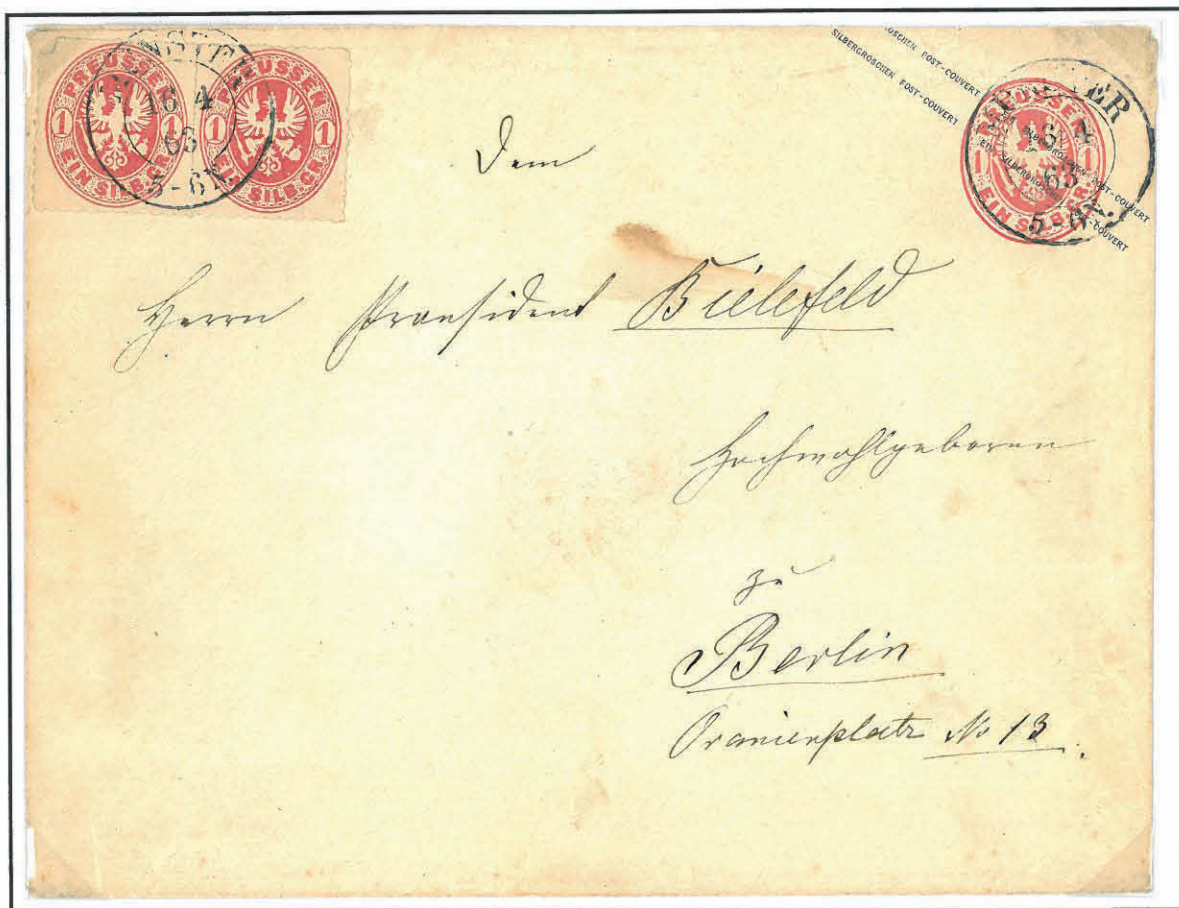 PREUSSEN
1 1
EIN SILB.GR.
PREUSSEN
1 1
EIN SILB.GR.
16 4
63
5-6N.
SILBERGROSCHEN POST-COUVERT
SILBERGROSCHEN POST-COUVERT
PREUSSEN
1 1
EIN SILB.GR.
16 4
63
Dem
Herrn Praesident Bielefeld
Hochwohlgeboren
zu
Berlin
Oranienplatz No 13.